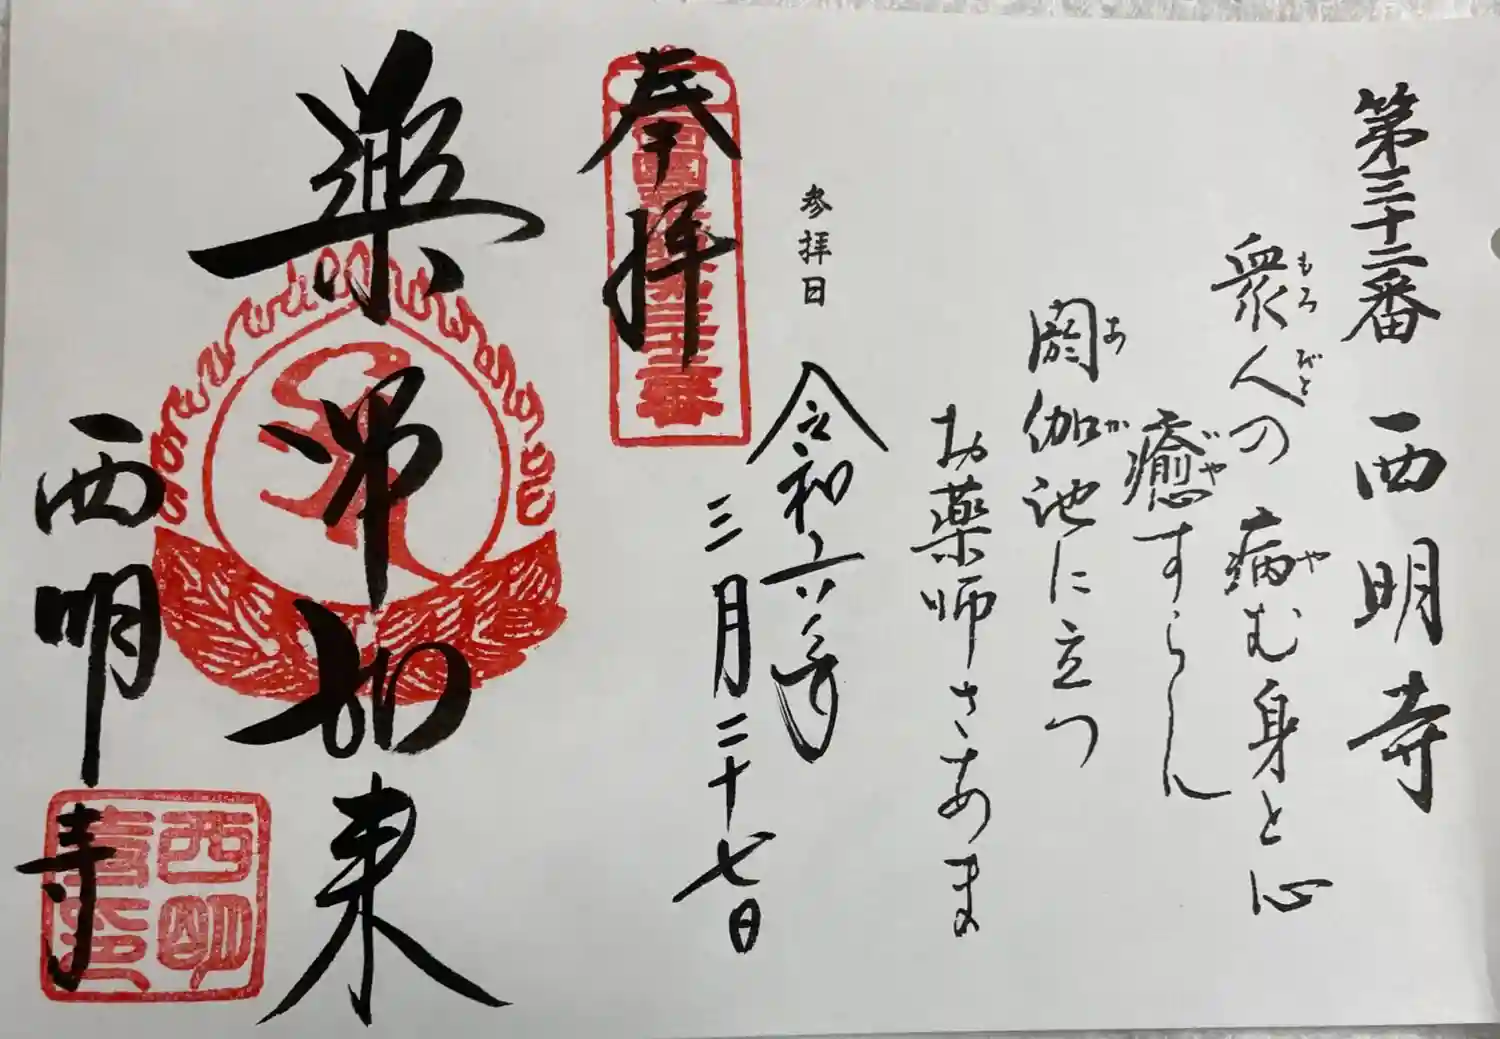 第三十二番 西明寺
衆人の 病む身と心
もろびと や
癒すらん
いや
閼伽池に立つ
あか
お薬師さあま
参拝日
令和六年
三月二十七日
奉拝
薬师如来
西明寺
西明
寺印